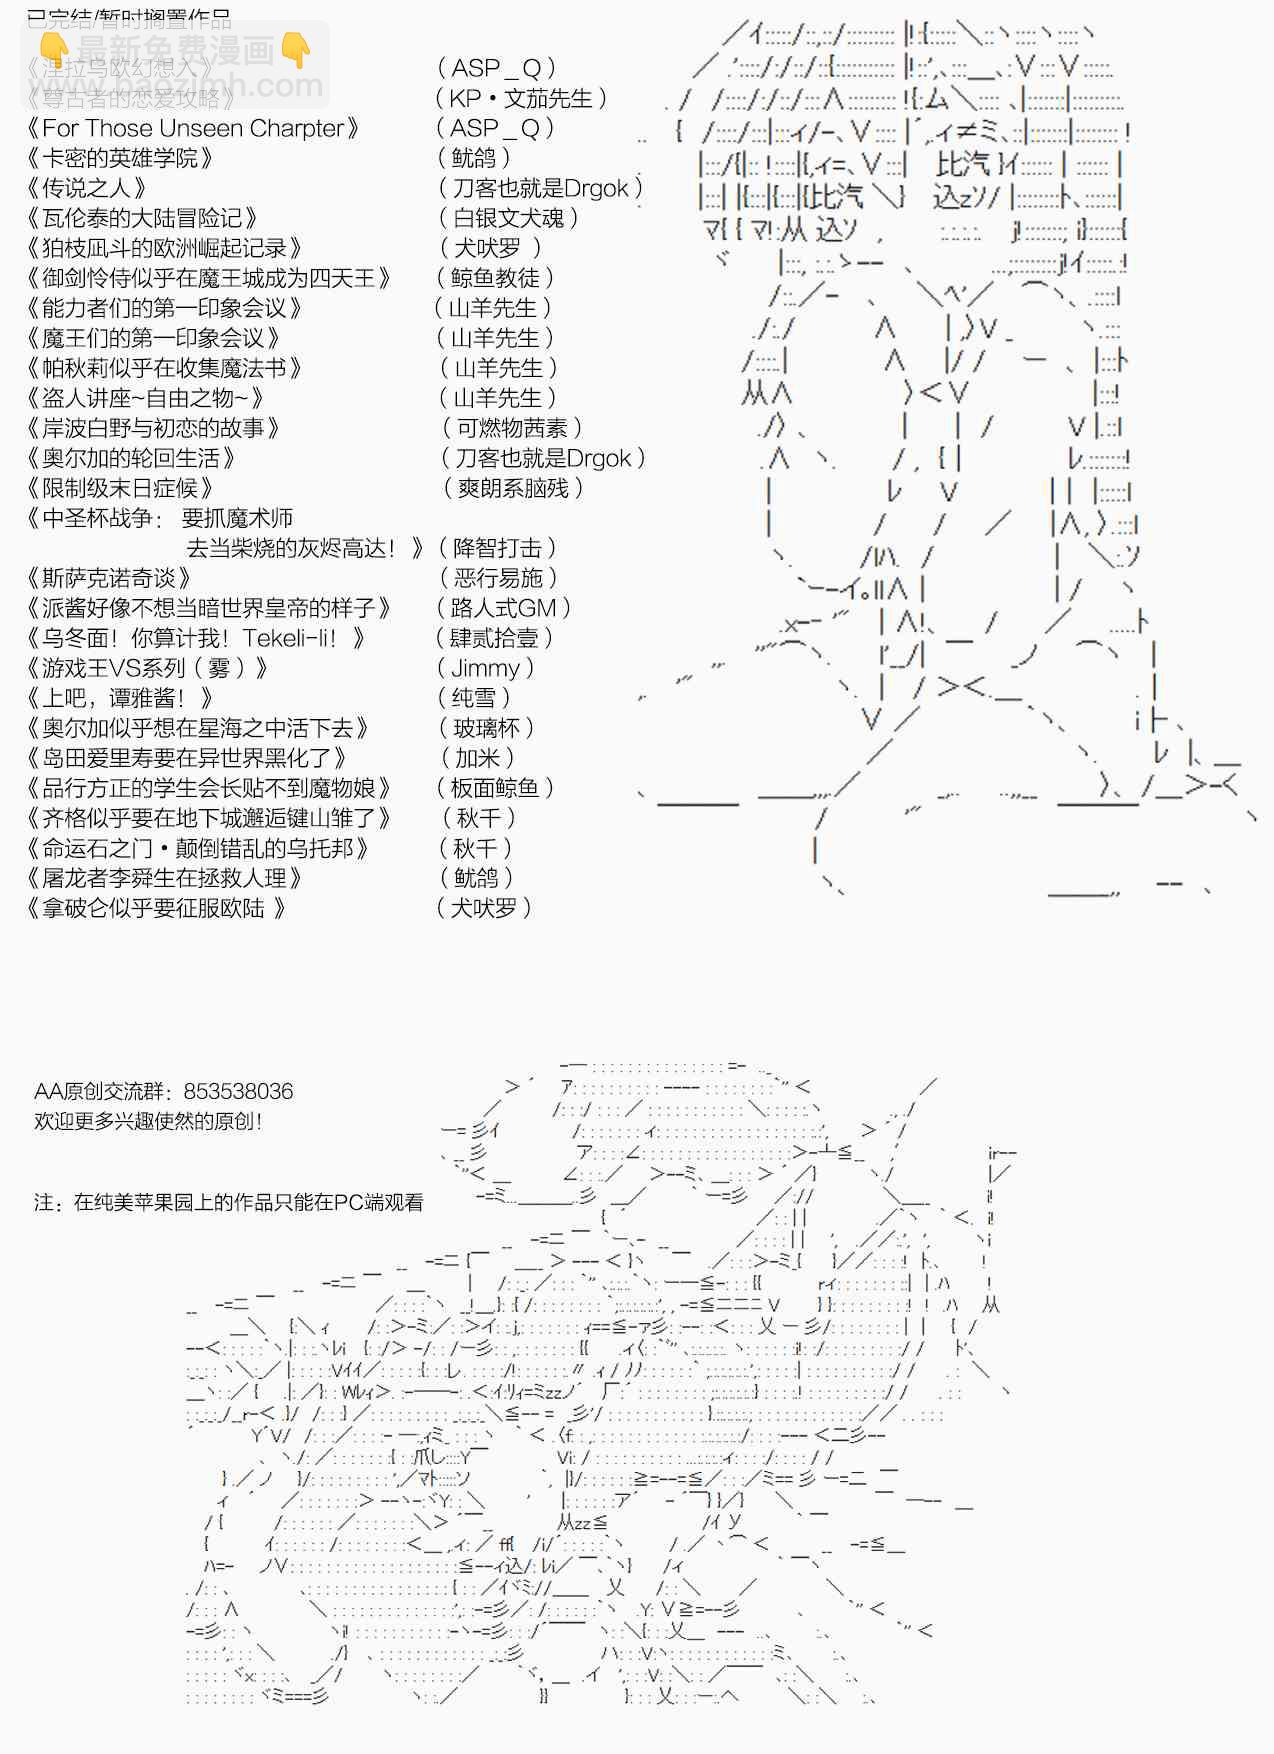 已完结/暂时搁置作品
👇最新免费漫画👇
www.baozimh.com
《涅拉乌欧幻想入》 （ASP_Q）
《尊古者的恋爱攻略》 （KP·文茄先生）
《For Those Unseen Charpter》 （ASP_Q）
《卡密的英雄学院》 （鱿鸽）
《传说之人》 （刀客也就是Drgok）
《瓦伦泰的大陆冒险记》 （白银文犬魂）
《狛枝凪斗的欧洲崛起记录》 （犬吠罗 ）
《御剑怜侍似乎在魔王城成为四天王》 （鲸鱼教徒）
《能力者们的第一印象会议》 （山羊先生）
《魔王们的第一印象会议》 （山羊先生）
《帕秋莉似乎在收集魔法书》 （山羊先生）
《盗人讲座~自由之物~》 （山羊先生）
《岸波白野与初恋的故事》 （可燃物茜素）
《奥尔加的轮回生活》 （刀客也就是Drgok）
《限制级末日症候》 （爽朗系脑残）
《中圣杯战争： 要抓魔术师
去当柴烧的灰烬高达！》（降智打击）
《斯萨克诺奇谈》 （恶行易施）
《派酱好像不想当暗世界皇帝的样子》 （路人式GM）
《乌冬面！你算计我！Tekeli-li！》 （肆贰拾壹）
《游戏王VS系列（雾）》 （Jimmy）
《上吧，谭雅酱！》 （纯雪）
《奥尔加似乎想在星海之中活下去》 （玻璃杯）
《岛田爱里寿要在异世界黑化了》 （加米）
《品行方正的学生会长贴不到魔物娘》 （板面鲸鱼）
《齐格似乎要在地下城邂逅键山雏了》 （秋千）
《命运石之门·颠倒错乱的乌托邦》 （秋千）
《屠龙者李舜生在拯救人理》 （鱿鸽）
《拿破仑似乎要征服欧陆 》 （犬吠罗）
AA原创交流群：853538036
欢迎更多兴趣使然的原创！
注：在纯美苹果园上的作品只能在PC端观看